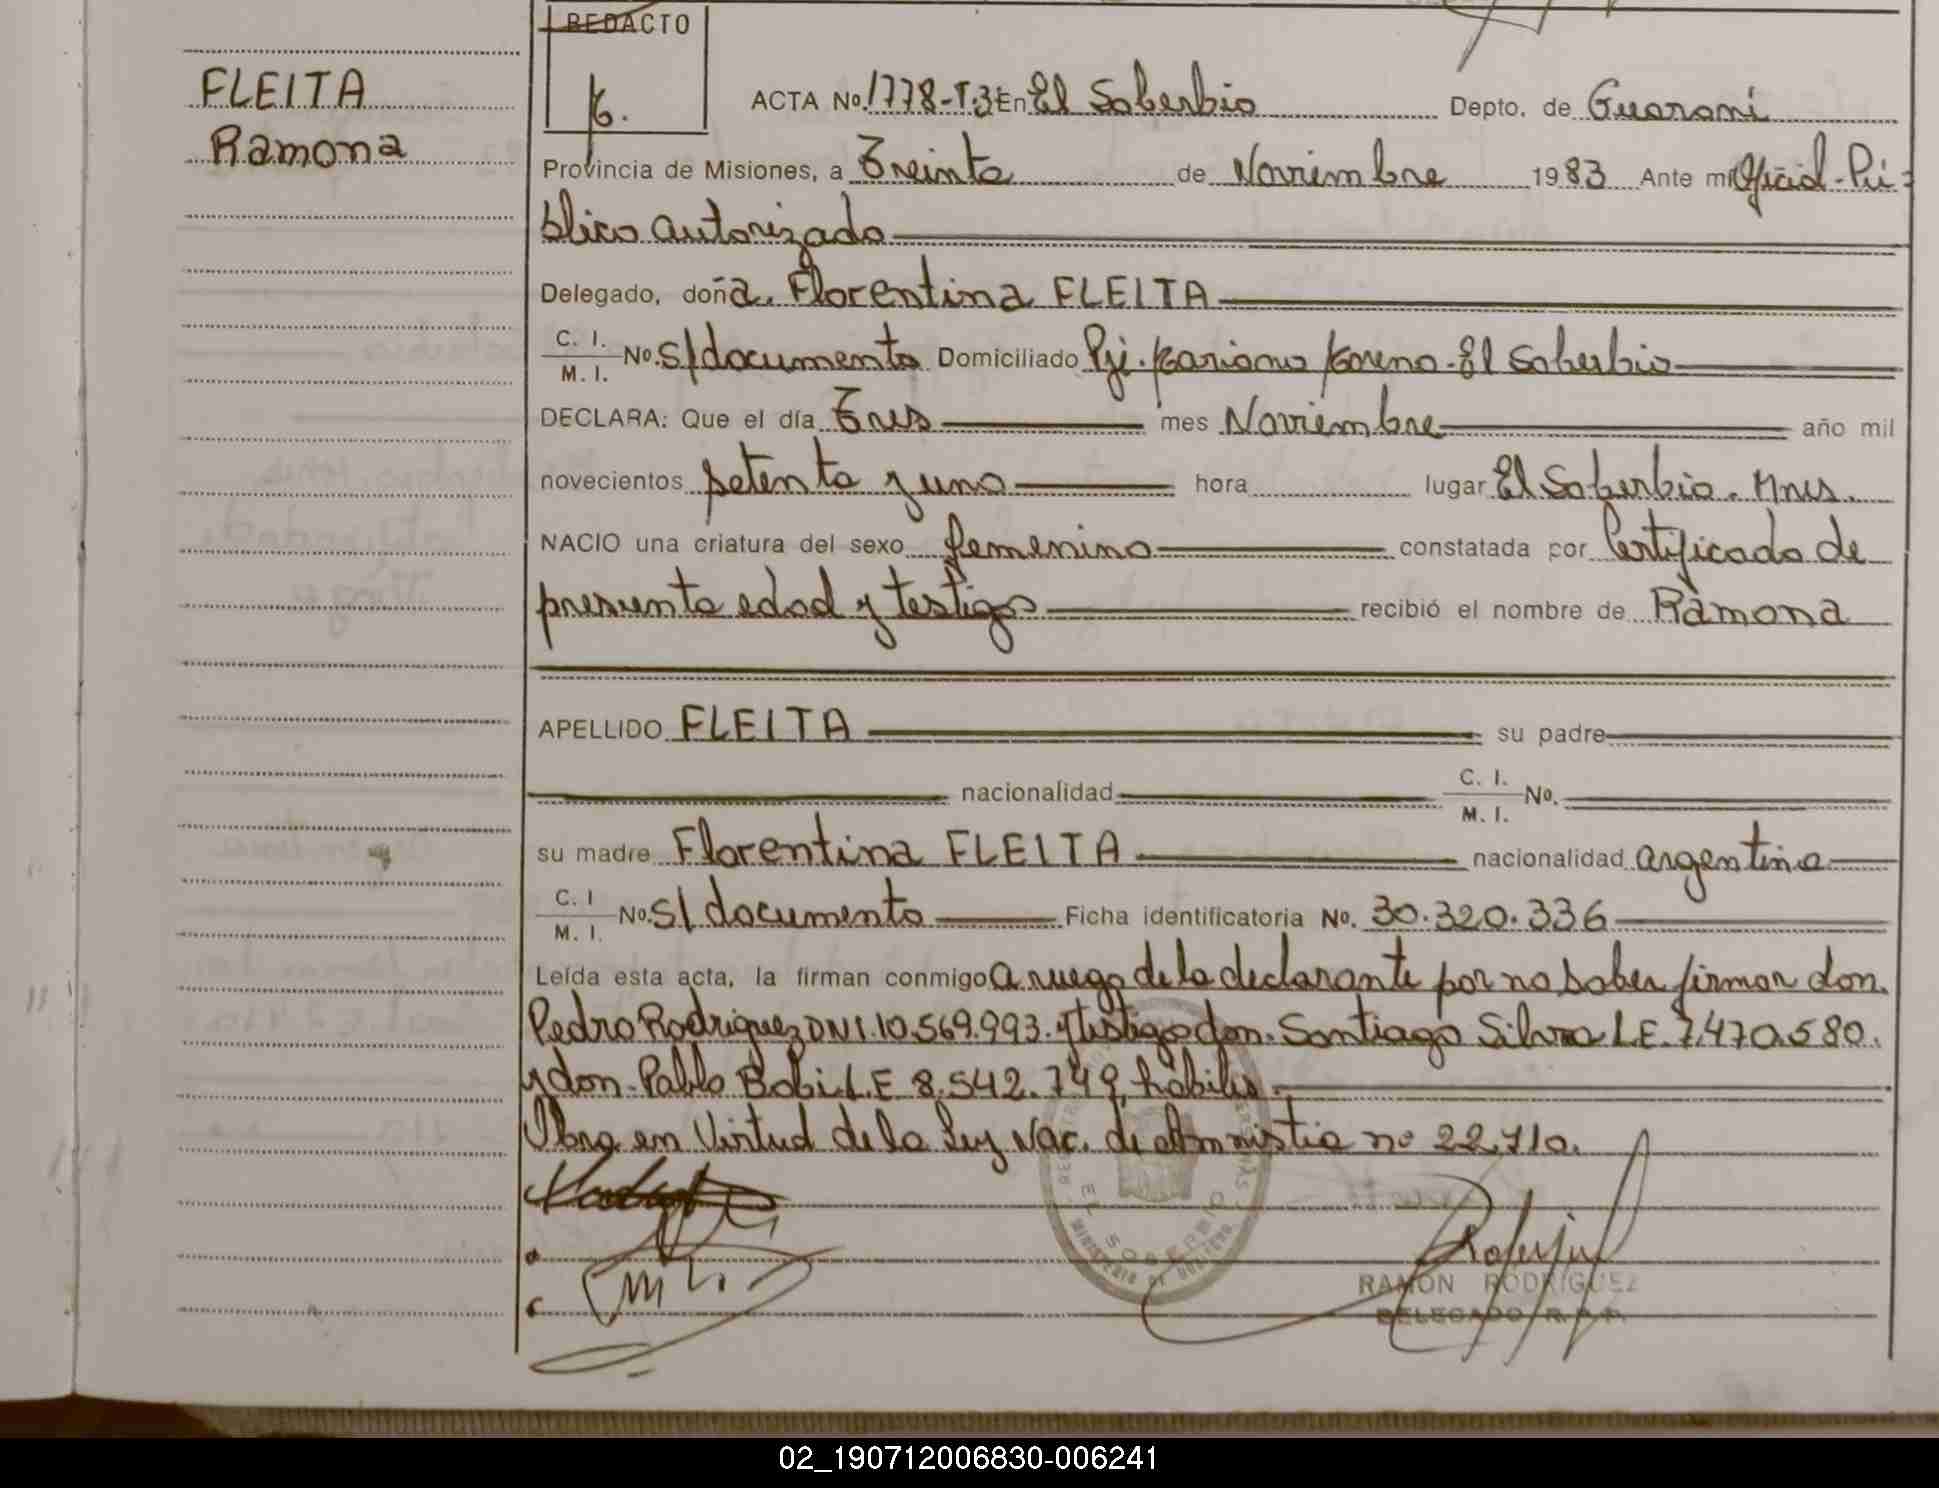 FLEITA
Ramona
REDACTO
ACTA No. 1778-T.3 En El Soberbio Depto. de Guarani
Provincia de Misiones, a Treinta de Noviembre 1983 Ante mi Oficial Pú=
blico autorizado
Delegado, doña. Florentina FLEITA
C. I. / M. I. No. S/documento Domiciliado Pje. Mariano Moreno. El Soberbio
DECLARA: Que el día Tres mes Noviembre año mil
novecientos setenta y uno hora lugar El Soberbio. Mnes.
NACIO una criatura del sexo femenino constatada por Certificado de
presunta edad y testigos recibió el nombre de Ramona
APELLIDO FLEITA su padre
nacionalidad C. I. / M. I. No.
su madre Florentina FLEITA nacionalidad argentina
C. I / M. I. No. S/documento Ficha identificatoria No. 30.320.336
Leída esta acta, la firman conmigo a ruego de la declarante por no saber firmar don.
Pedro Rodriguez DNI.10.569.993. y testigos don. Santiago Silva L.E. 7.470.580.
y don. Pablo Bobi L.E 8.542.749, hábiles.
Obra en Virtud de la Ley Nac. de amnistia no 22.710.
EL SOBERBIO
MINISTERIO DE GOBIERNO
RAMON RODRIGUEZ
DELEGADO R.P.P.
02_190712006830-006241